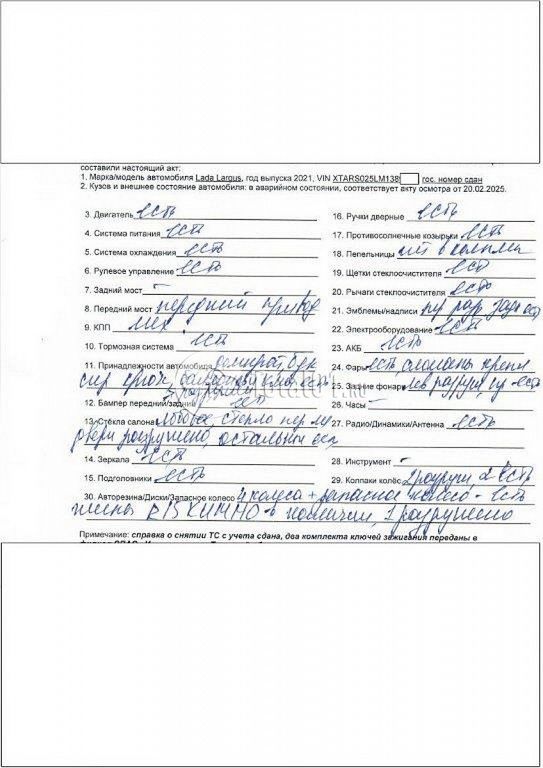 составили настоящий акт:
1. Марка/модель автомобиля Lada Largus, год выпуска 2021, VIN XTARS025LM138 гос. номер сдан
2. Кузов и внешнее состояние автомобиля: в аварийном состоянии, соответствует акту осмотра от 20.02.2025.
3. Двигатель есть
4. Система питания есть
5. Система охлаждения есть
6. Рулевое управление есть
7. Задний мост -
8. Передний мост передний привод
9. КПП мех
10. Тормозная система есть
11. Принадлежности автомобиля домкрат, бук
есть
12. Бампер передний/задний есть
13. Стёкла салона лобовое, стекло пер ле
двери разрушено, остальные есть
14. Зеркала есть
15. Подголовники есть
16. Ручки дверные есть
17. Противосолнечные козырьки есть
18. Пепельницы нет в
19. Щетки стеклоочистителя есть
20. Рычаги стеклоочистителя есть
21. Эмблемы/надписи пер разр, задн есть
22. Электрооборудование есть
23. АКБ есть
24. Фары есть сломаны креп
25. Задние фонари лев разруш, пр - есть
26. Часы -
27. Радио/Динамики/Антенна есть
28. Инструмент -
29. Колпаки колёс 2 разруш, 2 есть
30. Авторезина/Диски/Запасное колесо 4 колеса + запасное колесо - есть
R15 в наличии, 1 разрушено
Примечание: справка о снятии ТС с учета сдана, два комплекта ключей зажигания переданы в